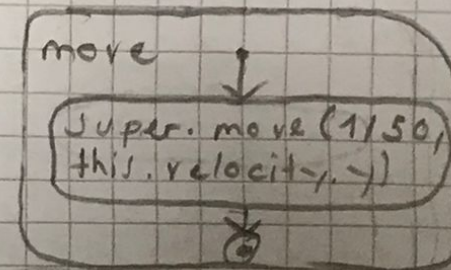 move
super.move(1/50,
this.velocity.y)